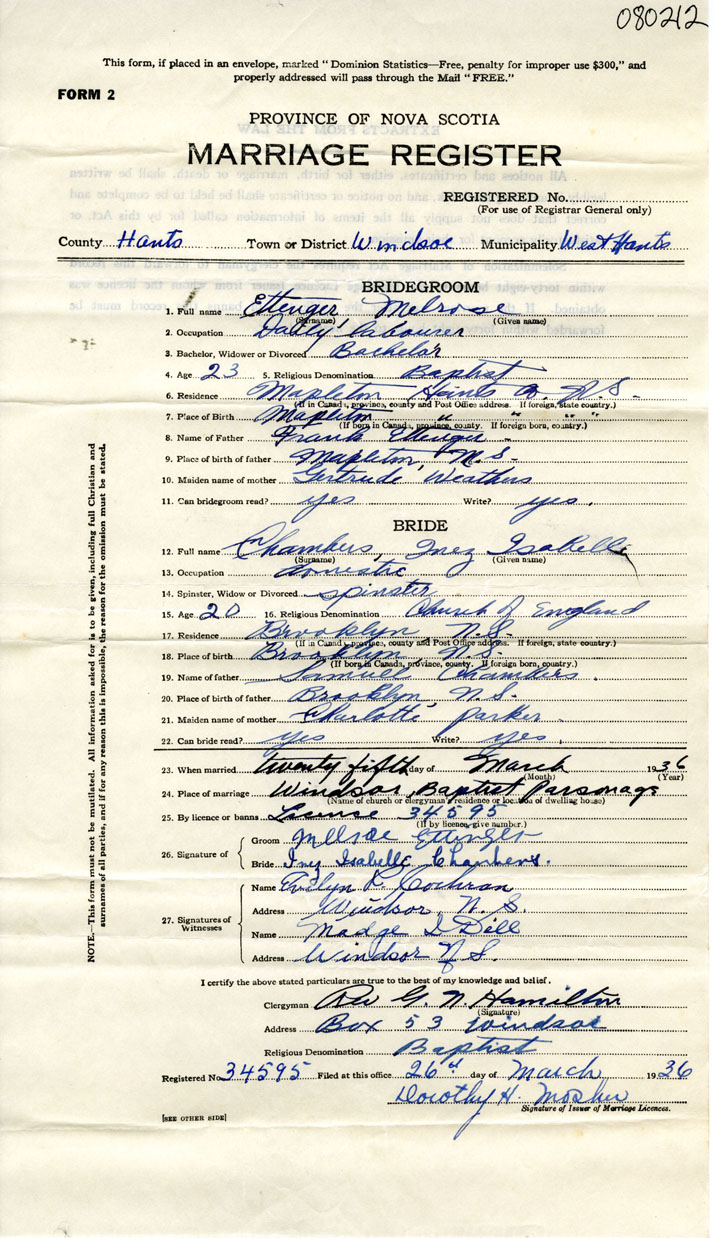 080212
This form, if placed in an envelope, marked "Dominion Statistics—Free, penalty for improper use $300," and
properly addressed will pass through the Mail "FREE."
FORM 2
PROVINCE OF NOVA SCOTIA
MARRIAGE REGISTER
REGISTERED No.
(For use of Registrar General only)
County Hants Town or District Windsor Municipality West Hants
BRIDEGROOM
1. Full name Ettenger Melrose
(Surname) (Given name)
2. Occupation Daily labourer
3. Bachelor, Widower or Divorced Bachelor
4. Age 23 5. Religious Denomination Baptist
6. Residence Mapleton Hants N.S.
(If in Canada, province, county and Post Office address. If foreign, state country.)
7. Place of Birth Mapleton " " "
(If born in Canada, province, county. If foreign born, country.)
8. Name of Father Frank Ettenger
9. Place of birth of father Mapleton, N.S.
10. Maiden name of mother Gertrude Weathers
11. Can bridegroom read? yes Write? yes.
BRIDE
12. Full name Chambers, Inez Isabelle
(Surname) (Given name)
13. Occupation domestic
14. Spinster, Widow or Divorced spinster
15. Age 20 16. Religious Denomination Church of England
17. Residence Brooklyn N.S.
(If in Canada, province, county and Post Office address. If foreign, state country.)
18. Place of birth Brooklyn N.S.
(If born in Canada, province, county. If foreign born, country.)
19. Name of father Samuel Chambers.
20. Place of birth of father Brooklyn, N.S.
21. Maiden name of mother Charlotte Parker
22. Can bride read? yes Write? yes.
23. When married twenty fifth day of March 1936
(Month) (Year)
24. Place of marriage Windsor, Baptist Parsonage
(Name of church or clergyman's residence or location of dwelling house)
25. By licence or banns License 34595
(If by licence, give number.)
26. Signature of
Groom Melrose Ettenger
Bride Inez Isabelle Chambers.
27. Signatures of Witnesses
Name Evelyn R. Cochran
Address Windsor, N.S.
Name Madge D Dill
Address Windsor N.S.
I certify the above stated particulars are true to the best of my knowledge and belief.
Clergyman Rev G. N. Hamilton
(Signature)
Address Box 53 Windsor
Religious Denomination Baptist
Registered No 34595 Filed at this office 26th day of March 1936
Dorothy H. Mosher
Signature of Issuer of Marriage Licences.
[SEE OTHER SIDE]
NOTE.—This form must not be mutilated. All information asked for is to be given, including full Christian and
surnames of all parties, and if for any reason this is impossible, the reason for the omission must be stated.